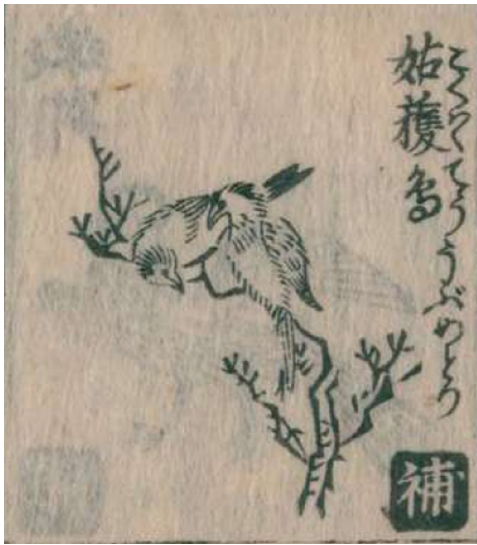 姑獲鳥
こくわくてううぶめとり
補